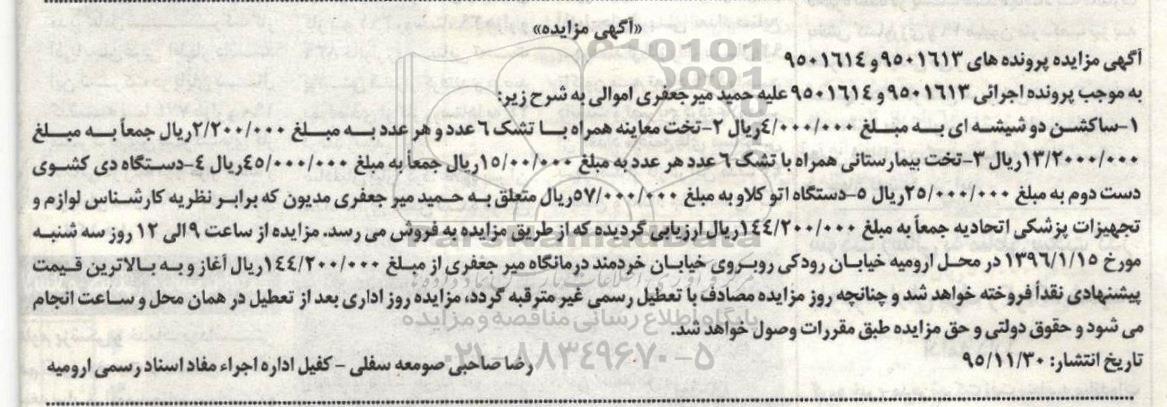 «آگهی مزایده»
آگهی مزایده پرونده های ۹۵۰۱۶۱۳ و ۹۵۰۱۶۱٤
به موجب پرونده اجرائی ۹۵۰۱۶۱۳ و ۹۵۰۱۶۱٤ علیه حمید میرجعفری اموالی به شرح زیر:
۱-ساکشن دو شیشه ای به مبلغ ٤/۰۰۰/۰۰۰ریال ۲-تخت معاینه همراه با تشک ٦ عدد و هر عدد به مبلغ ۲/۲۰۰/۰۰۰ریال جمعاً به مبلغ
۱۳/۲۰۰۰/۰۰۰ریال ۳-تخت بیمارستانی همراه با تشک ٦ عدد هر عدد به مبلغ ۱۵/۰۰/۰۰۰ریال جمعاً به مبلغ ٤۵/۰۰۰/۰۰۰ریال ٤-دستگاه دی کشوی
دست دوم به مبلغ ۲۵/۰۰۰/۰۰۰ریال ۵-دستگاه اتو کلاو به مبلغ ۵۷/۰۰۰/۰۰۰ریال متعلق به حمید میر جعفری مدیون که برابر نظریه کارشناس لوازم و
تجهیزات پزشکی اتحادیه جمعاً به مبلغ ۱٤٤/۲۰۰/۰۰۰ریال ارزیابی گردیده که از طریق مزایده به فروش می رسد. مزایده از ساعت ۹ الی ۱۲ روز سه شنبه
مورخ ۱۳۹٦/۱/۱۵ در محل ارومیه خیابان رودکی روبروی خیابان خردمند درمانگاه میر جعفری از مبلغ ۱٤٤/۲۰۰/۰۰۰ریال آغاز و به بالاترین قیمت
پیشنهادی نقداً فروخته خواهد شد و چنانچه روز مزایده مصادف با تعطیل رسمی غیر مترقبه گردد، مزایده روز اداری بعد از تعطیل در همان محل و ساعت انجام
می شود و حقوق دولتی و حق مزایده طبق مقررات وصول خواهد شد.
تاریخ انتشار: ۹۵/۱۱/۳۰
رضا صاحبی صومعه سفلی - کفیل اداره اجراء مفاد اسناد رسمی ارومیه
ParsNamadData
پایگاه اطلاع رسانی مناقصه و مزایده
۰۲۱-۸۸۳٤۹۶۷۰-۵